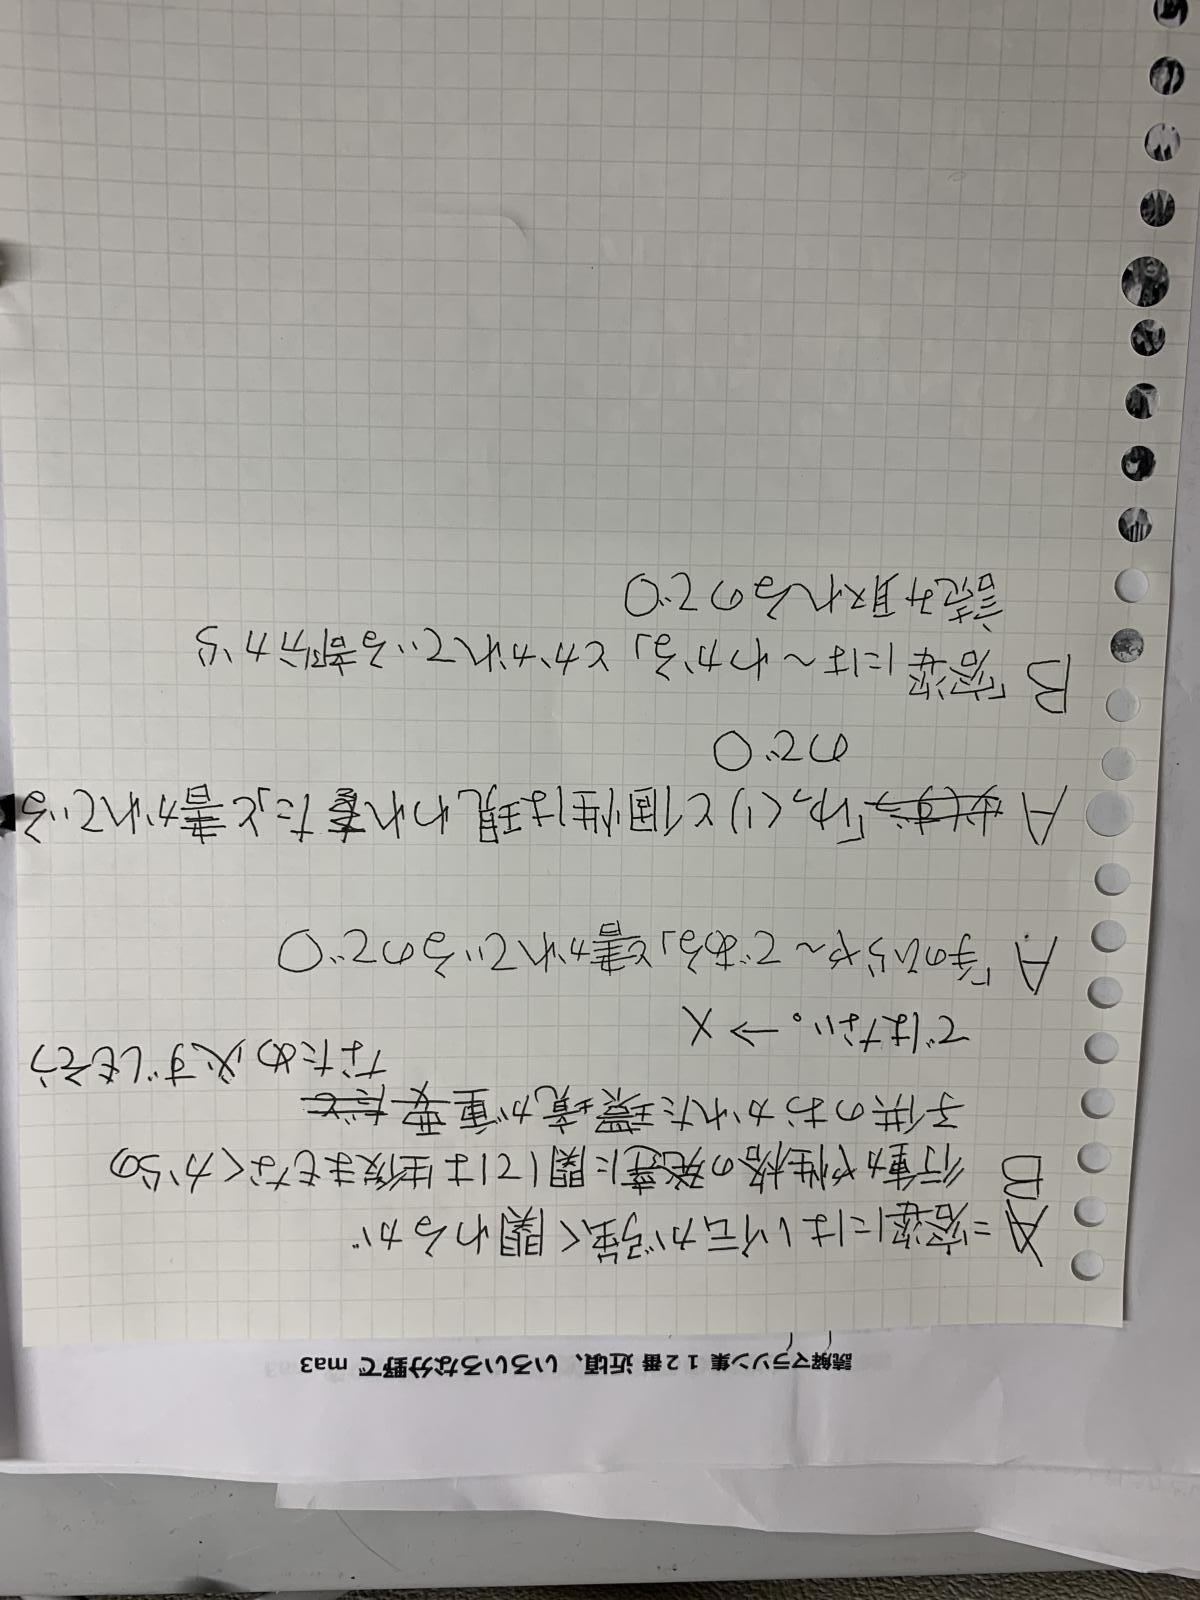 読解マラソン集 12番 近頃、いろいろな分野で ma3
A =容姿には遺伝が強く関わるが
B 行動や性格の発達に関しては生後まもなくからの
子供のおかれた環境が重要だと
なため必ずしもそう
ではない。→X
A 「手のひらや〜である」と書かれているので○
A 必ずう「ゆっくりと個性は現われきた」と書かれている
ので○
B 「容姿には〜わかる」とかかれている部分から
読み取れるので○